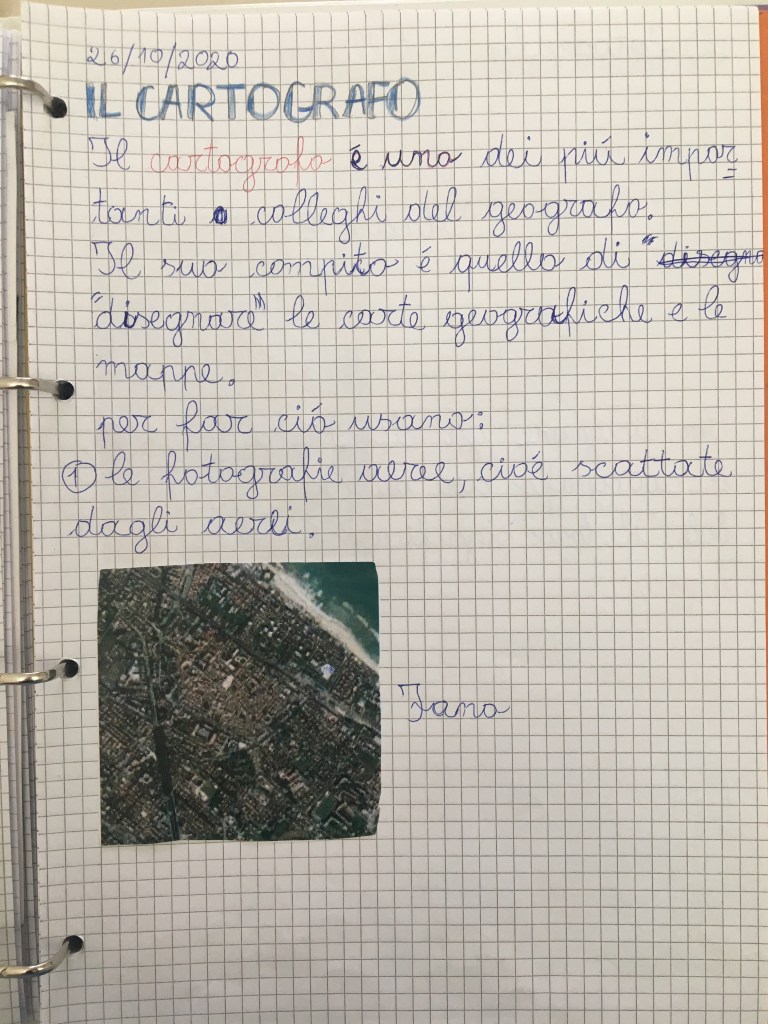 26/10/2020
IL CARTOGRAFO
Il cartografo é uno dei piú impor=
tanti colleghi del geografo.
Il suo compito é quello di "disegna
"disegnare" le carte geografiche e le
mappe.
per far ció usano:
① le fotografie aeree, cioé scattate
dagli aerei.
Fano